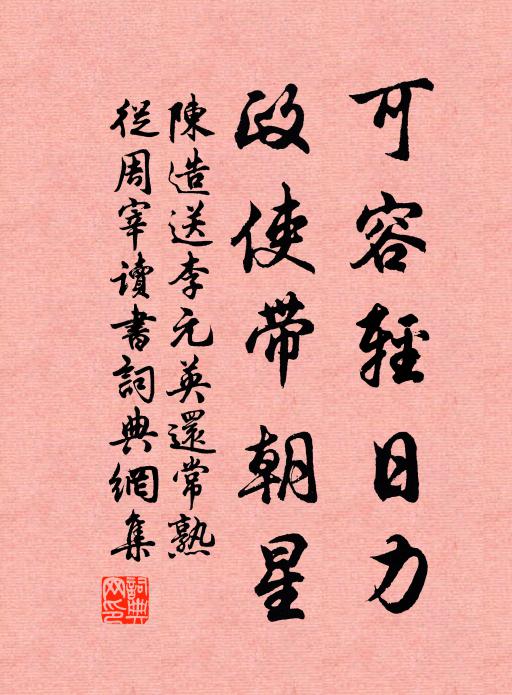 可容輕日力
政使帶朝星
陳造送李元英還常熟
從周宰讀書詞典網集
詞典网印